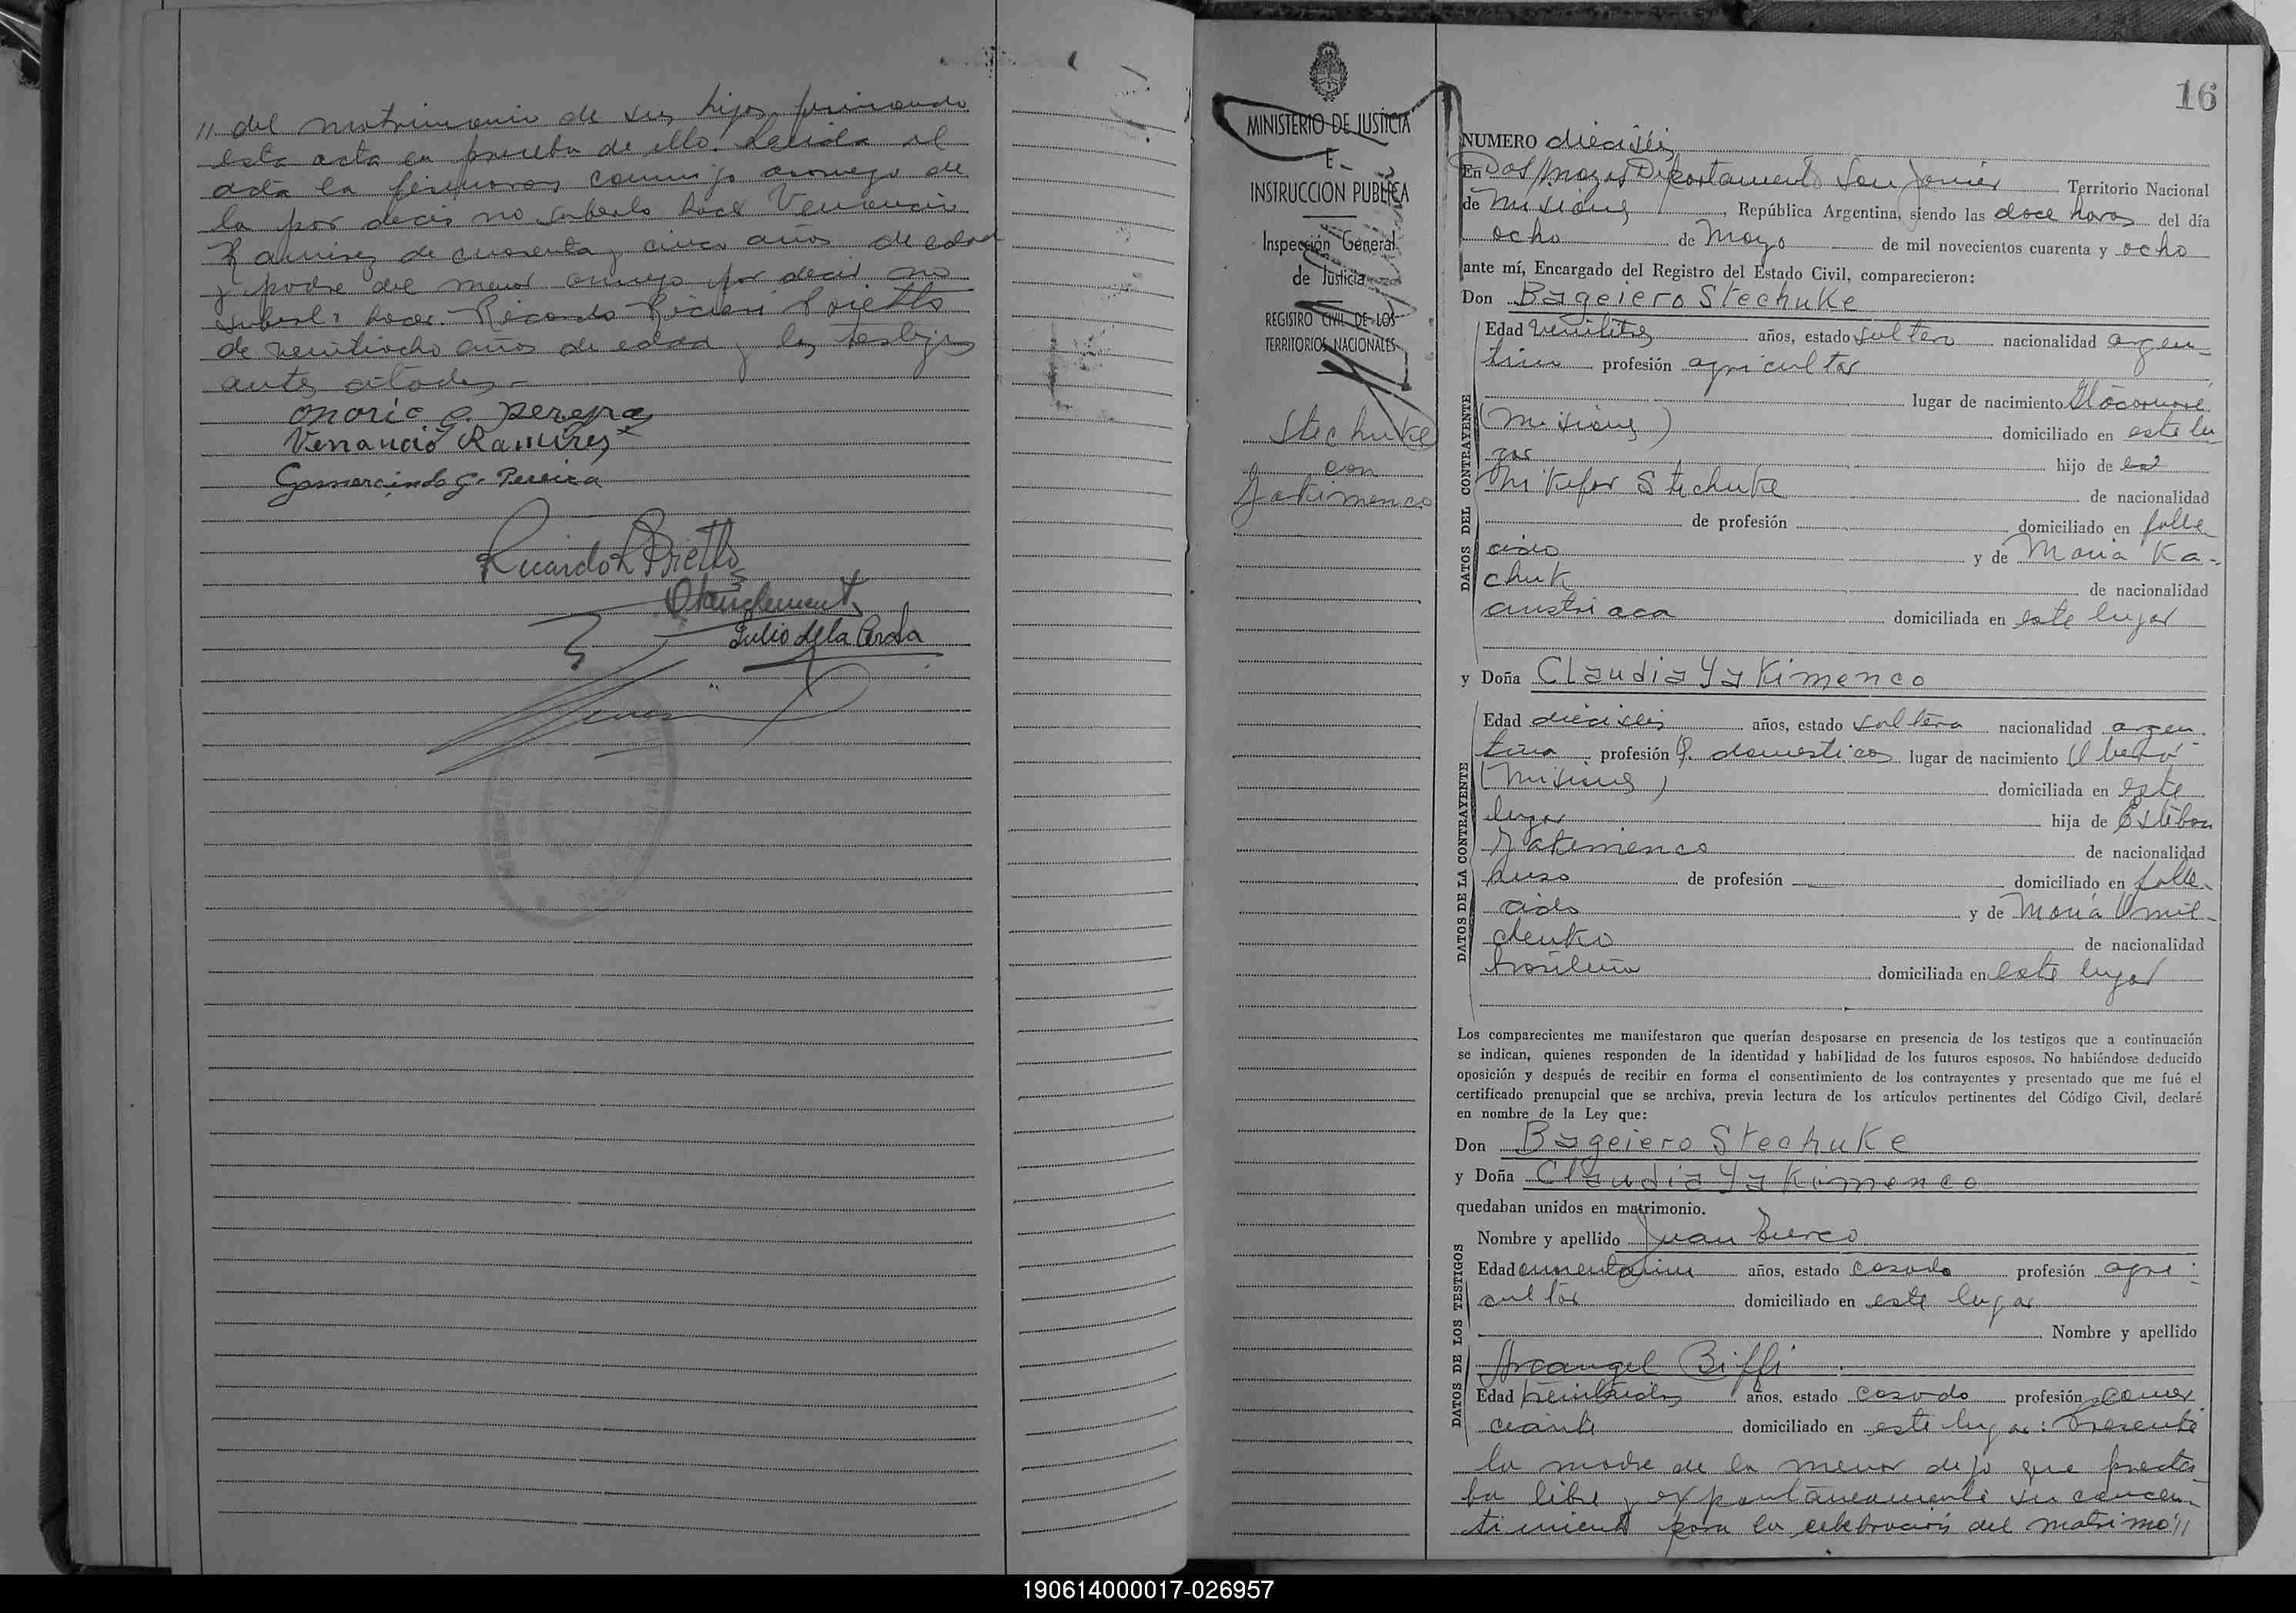 // del matrimonio de sus hijos, firmando
esta acta en prueba de ello. Leída el
acta la firmaron conmigo a ruego de
la por decir no saberlo hace Venancio
Ramirez de cuarenta y cinco años de edad
y padre del menor a ruego por decir no
saberlo hacer Ricardo Prietto
de veintiocho años de edad y los testigos
antes citados.-
onorio g. pereyra
Venancio Ramires
Gomercindo G. Pereira
Ricardo R Prietto
Julio de la Cerda
16
MINISTERIO DE JUSTICIA
E
INSTRUCCION PUBLICA
Inspección General
de Justicia
REGISTRO CIVIL DE LOS
TERRITORIOS NACIONALES
Stechuke
con
Yakimenco
NUMERO dieciseis
En Dos Departamento San Javier Territorio Nacional
de Misiones, República Argentina, siendo las doce horas del día
ocho de Mayo de mil novecientos cuarenta y ocho
ante mí, Encargado del Registro del Estado Civil, comparecieron:
Don Bageiero Stechuke
DATOS DEL CONTRAYENTE
Edad veintitres años, estado soltero nacionalidad argen-
tino profesión agricultor
lugar de nacimiento
(Misiones) domiciliado en este lu
gar hijo de
Nikefor Stechuke de nacionalidad
de profesión domiciliado en falle
cido y de Maria Ka-
chuk de nacionalidad
austriaca domiciliada en este lugar
y Doña Claudia Yakimenco
DATOS DE LA CONTRAYENTE
Edad dieciseis años, estado soltera nacionalidad argen-
tina profesión q. domesticos lugar de nacimiento Oberá
(Misiones) domiciliada en este
lugar hija de Esteban
Yakimenco de nacionalidad
ruso de profesión domiciliado en falle-
cido y de Maria Omil-
chenko de nacionalidad
brasileña domiciliada en este lugar
Los comparecientes me manifestaron que querían desposarse en presencia de los testigos que a continuación
se indican, quienes responden de la identidad y habilidad de los futuros esposos. No habiéndose deducido
oposición y después de recibir en forma el consentimiento de los contrayentes y presentado que me fué el
certificado prenupcial que se archiva, previa lectura de los artículos pertinentes del Código Civil, declaré
en nombre de la Ley que:
Don Bageiero Stechuke
y Doña Claudia Yakimenco
quedaban unidos en matrimonio.
DATOS DE LOS TESTIGOS
Nombre y apellido Juan
Edad años, estado casado profesión agri-
cultor domiciliado en este lugar
Nombre y apellido
Arcangel Biffi
Edad años, estado casado profesión comer
ciante domiciliado en este lugar: Presente
la madre de la menor dijo que presta
ba libre y expontaneamente su concen-
timiento para la celebración del matrimo//
190614000017-026957